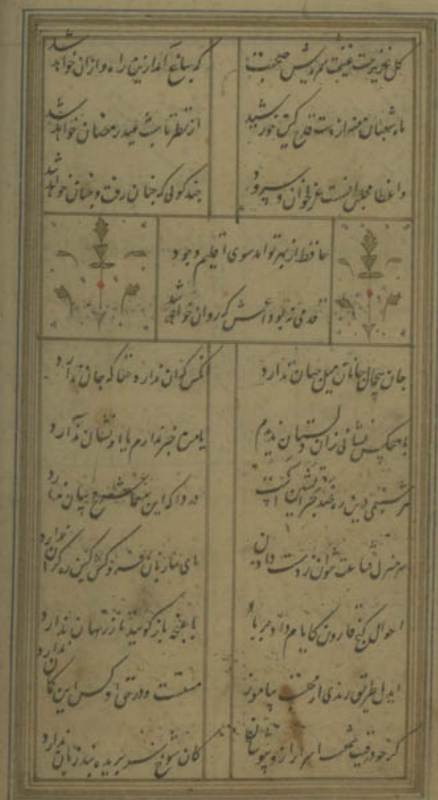 گل عزیزست غنیمت شمریدش صحبت
که بباغ آمد ازین راه و از آن خواهد شد
ماه شعبان منه از دست قدح کین خورشید
از نظر تا شب عید رمضان خواهد شد
مطربا مجلس انسست غزل خوان و سرود
چند گویی که چنان رفت و چنان خواهد شد
حافظ از بهر تو آمد سوی اقلیم وجود
قدمی نه بوداعش که روان خواهد شد
جان بی جمال جانان میل جهان ندارد
آنکس که این ندارد حقا که جان ندارد
با هیچکس نشانی زان دلستان ندیدم
یا من خبر ندارم یا او نشان ندارد
هر شبنمی درین ره صد بحر آتشین است
دردا که این معما شرح و بیان ندارد
سر منزل قناعت نتوان ز دست دادن
ای ساربان فروکش کین ره کران ندارد
احوال گنج قارون کایام داد بر باد
با غنچه باز گویید تا زر نهان ندارد
ای دل طریق رندی از محتسب بیاموز
مستست و در حق او کس این گمان ندارد
گر خود رقیب شمعست اسرار ازو بپوشان
کان شوخ سر بریده بند زبان ندارد